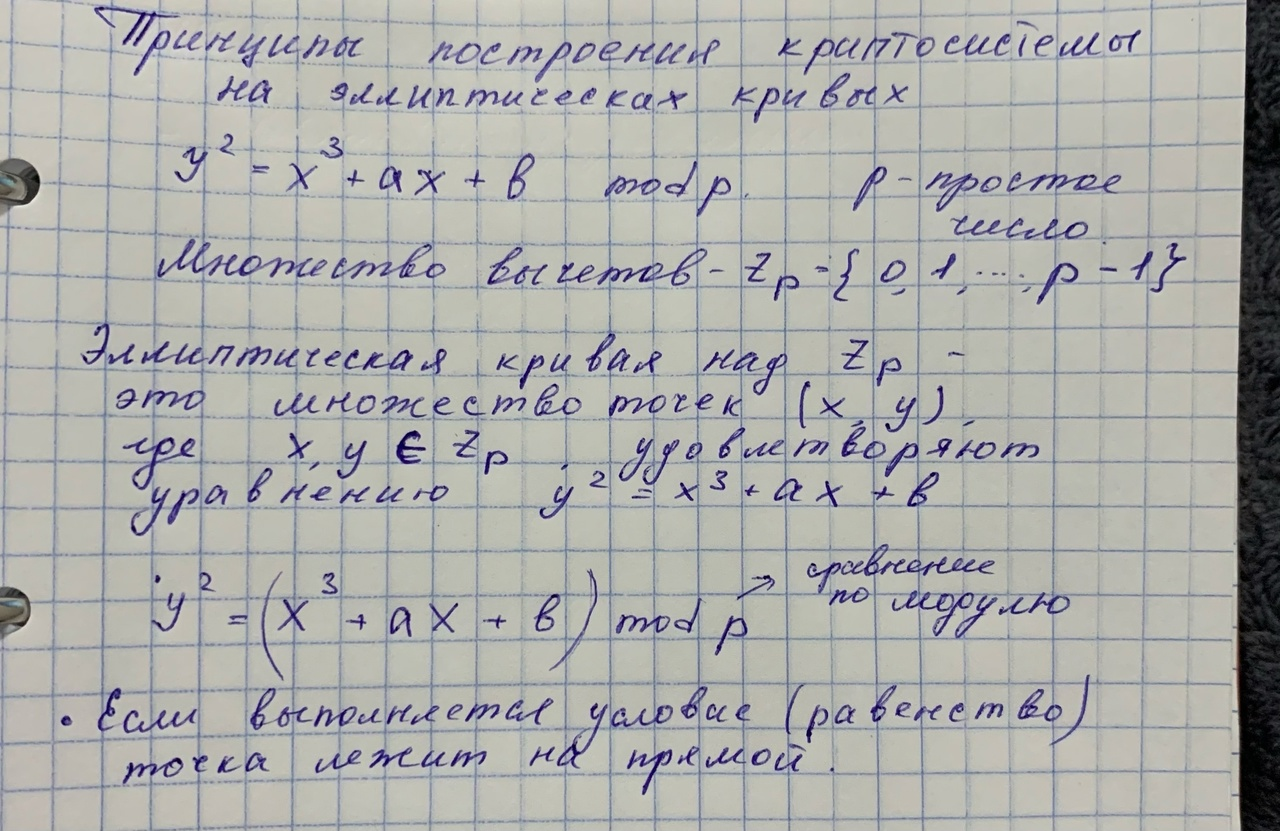 Принципы построения криптосистемы
на эллиптических кривых
y² = x³ + ax + b mod p. p - простое
число.
Множество вычетов - Zp = {0, 1, ..., p - 1}
Эллиптическая кривая над Zp -
это множество точек (x, y),
где x, y ∈ Zp, удовлетворяют
уравнению y² = x³ + ax + b
y² = (x³ + ax + b) mod p → сравнение
по модулю
• Если выполняется условие (равенство)
точка лежит на прямой.